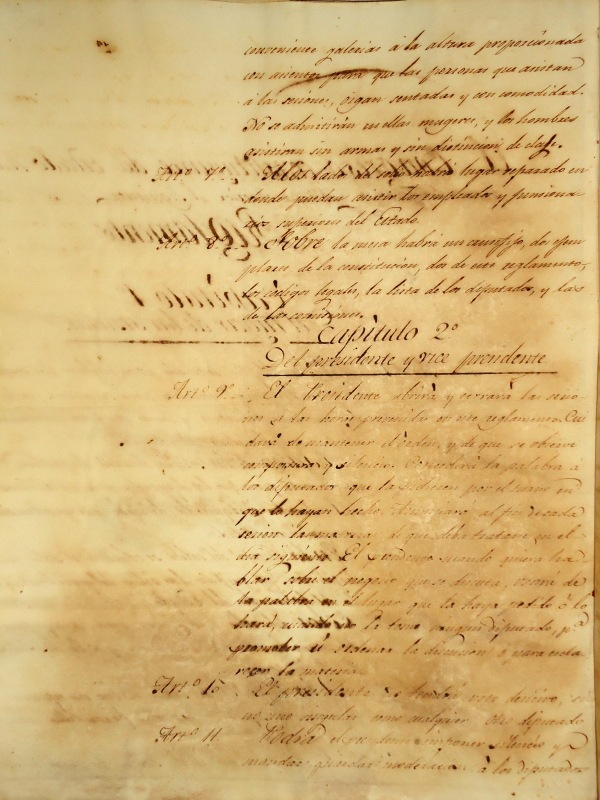 conveniente galerias á la altura proporcionada
con acientos para que las personas que asistan
á las seciones, oigan sentadas y con comodidad.
No se admitirán en ellas mugeres, y los hombres
asistiran sin armas y sin distincion de clase.
Artº 7º lado del habrá lugar separado en
donde puedan asistir los empleados y funciona
rios superiores del Estado.
Artº 8º Sobre la mesa habrá un crucifijo, dos ejem
plares de la constitucion, dos de este reglamento,
los códigos legales, la lista de los diputados, y las
de las comiciones.
Capitulo 2º
Del presidente y vice presidente
Artº 9º El Presidente abrirá y cerrará las secio
nes á las horas en este reglamento. Cui
dará de mantener el órden, y de que se observe
compostura y silencio. Concederá la palabra á
los diputados que la pidieren por el turno en
que la hayan hecho; al fin de cada
secion las materias de que debe tratarse en el
dia siguiente. El Presidente cuando quiera ha
blar sobre el negocio que se discuta, usará de
la palabra en el lugar que la haya pedido ó lo
hará, cuando no la tome ningun diputado, pª
promover ú ordenar la discusion ó para escla
recer la materia.
Artº 10 El presidente no tendrá voto decisivo, si
no uno singular como cualquier otro diputado
Artº 11. Podrá el presidente imponer silencio y
mandar guardar moderacion á los diputados